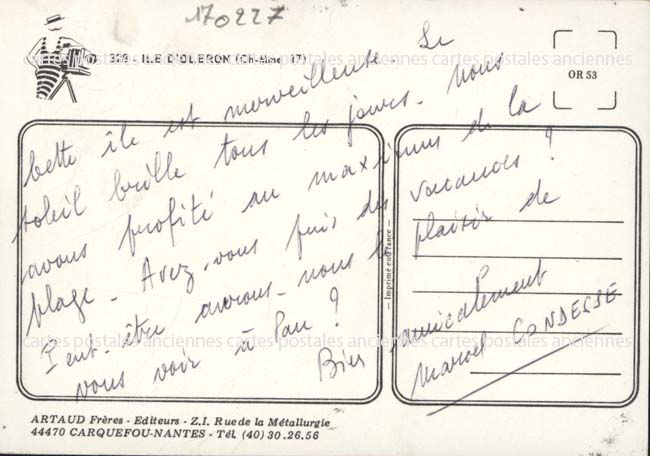 170227
329 - ILE D'OLERON (Ch-Mme 17)
OR 53
Cette île est merveilleuse. Le
soleil brille tous les jours. Nous
avons profité au maximum de la
plage. Avez-vous pris des vacances ?
Peut-être aurons-nous le plaisir de
vous voir à Pau ?
Bien amicalement
Marcel CONDESSE
Imprimé en France
cartes postales anciennes cartes postales anciennes cartes postales anciennes
ARTAUD Frères - Editeurs - Z.I. Rue de la Métallurgie
44470 CARQUEFOU-NANTES - Tél. (40) 30.26.56